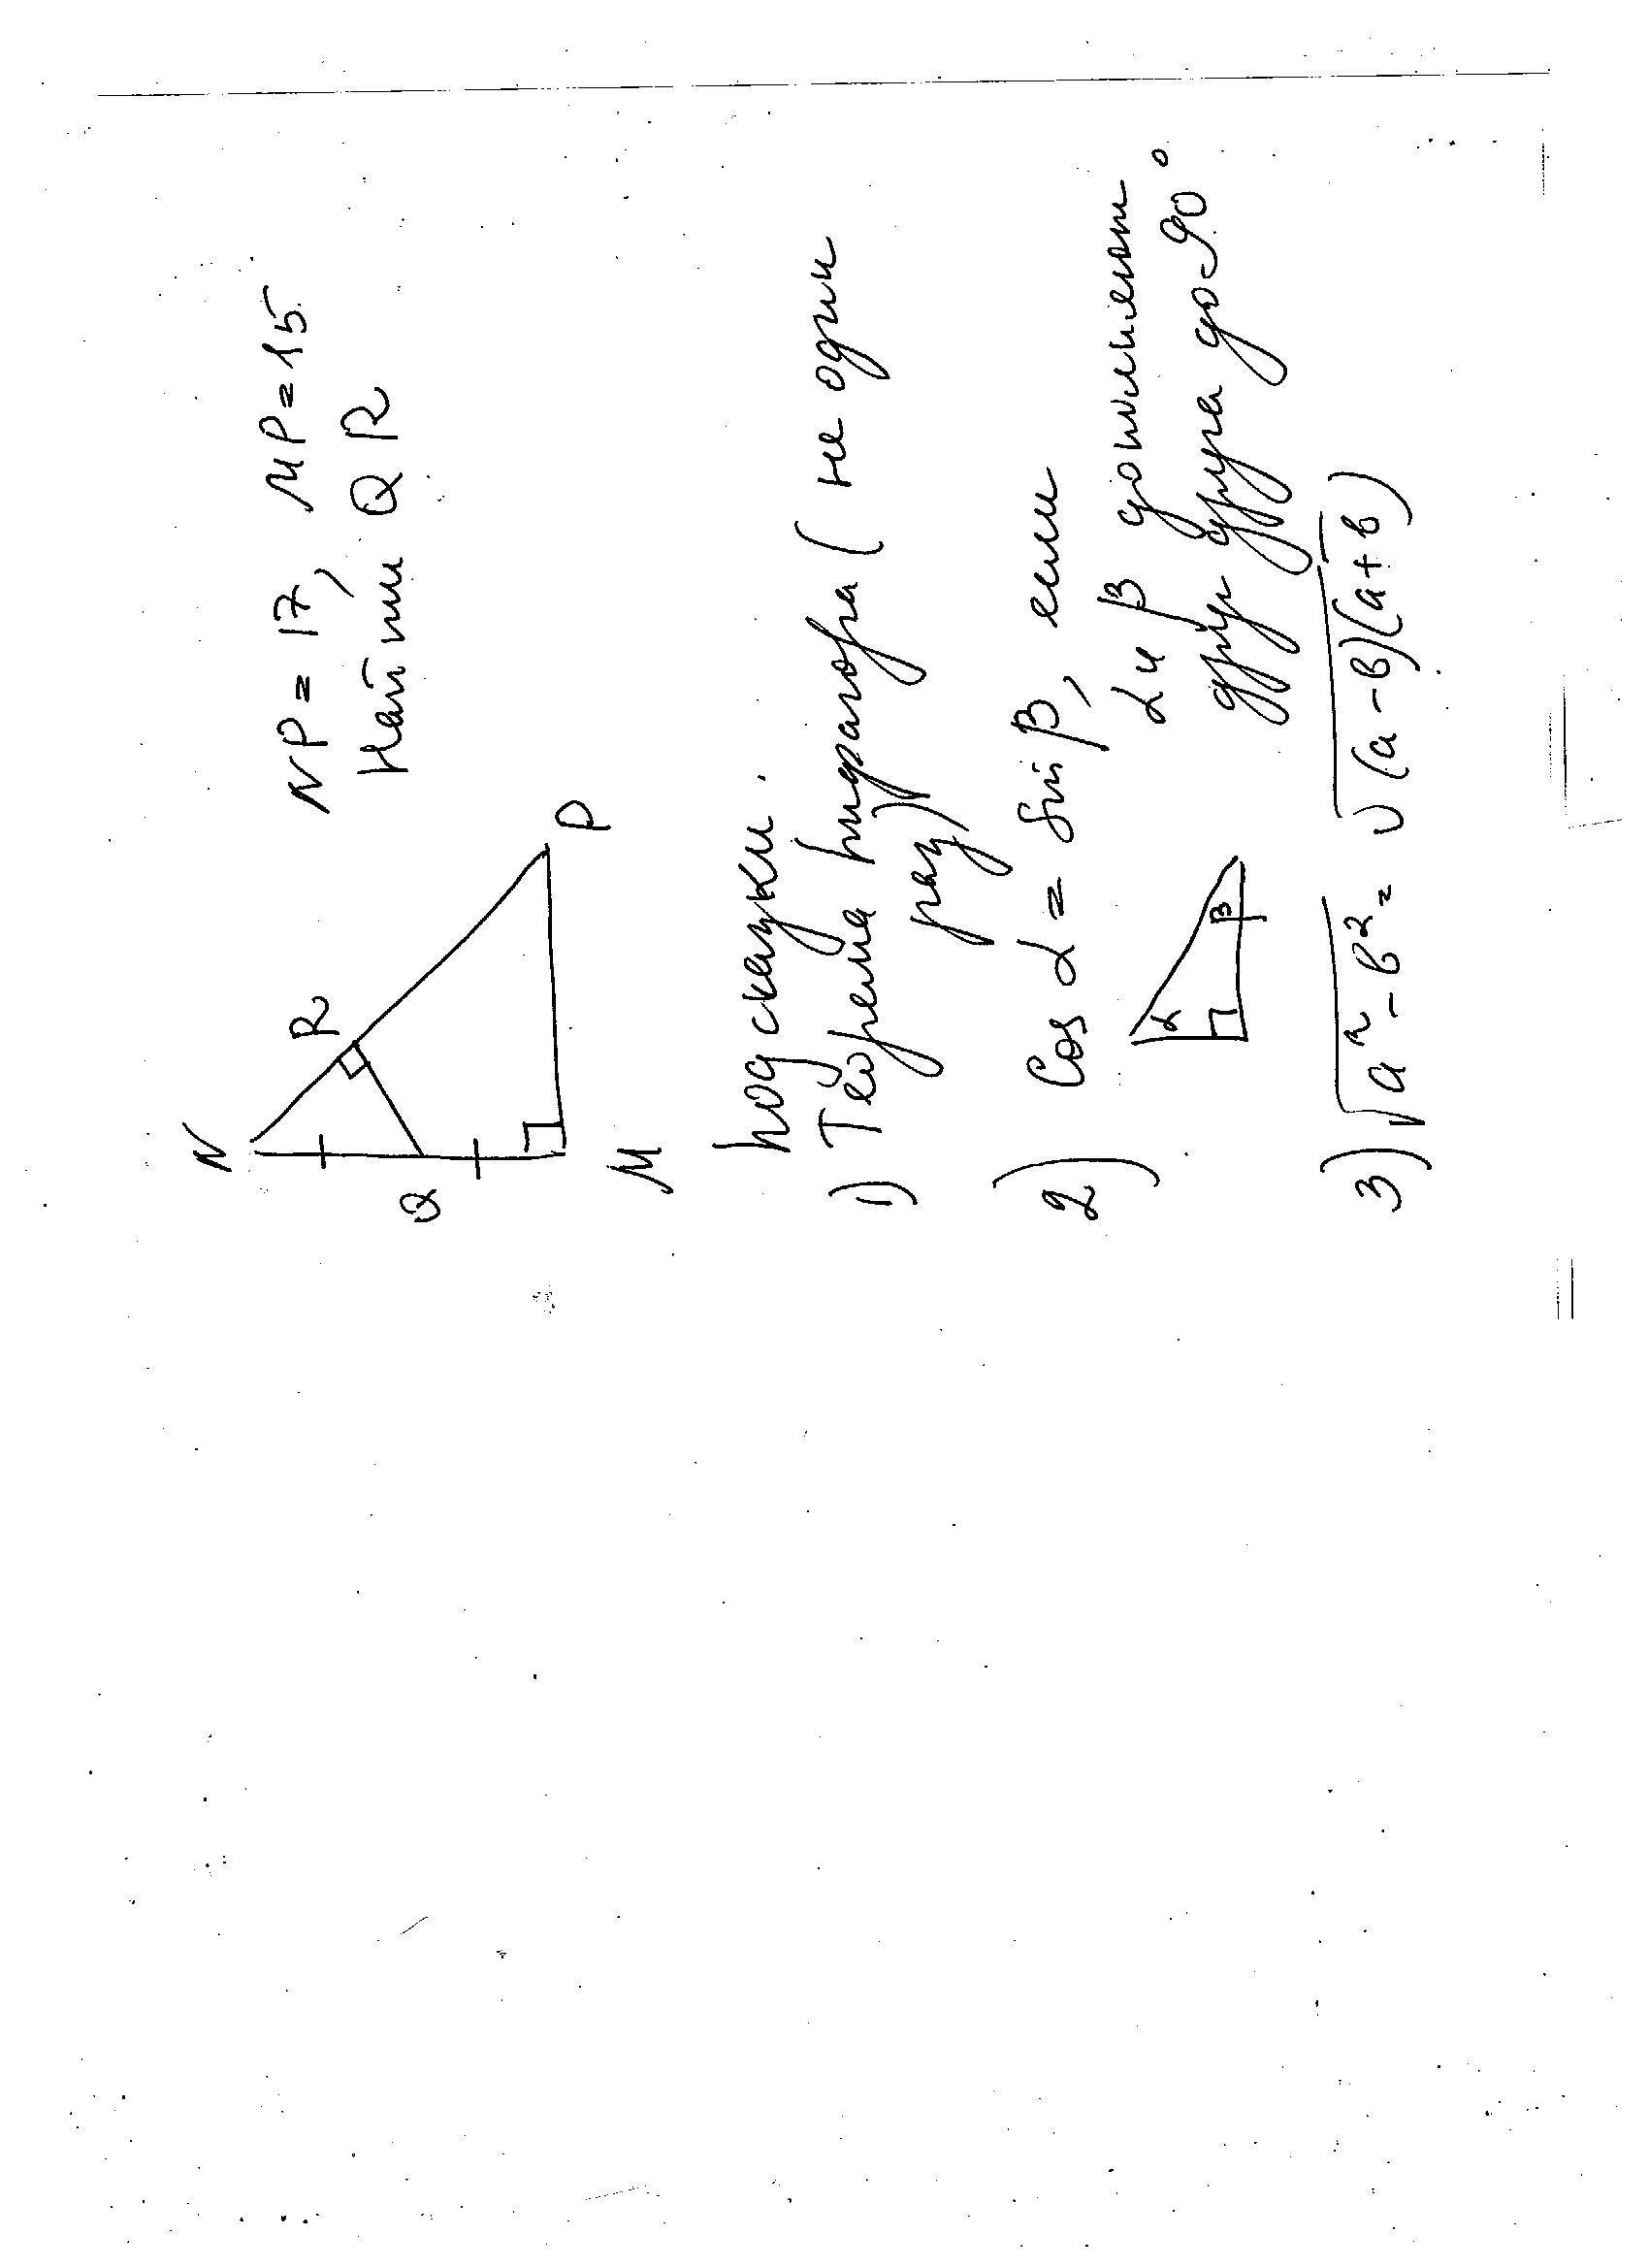 N
R
Q
M
P
NP = 17, MP = 15
Найти QR
Подсказки.
1) Теорема Пифагора (не один
раз)
2) Cos α = Sin β, если
α и β дополняют
друг друга до 90°
α
β
3) √a² - b² = √(a - b)(a + b)